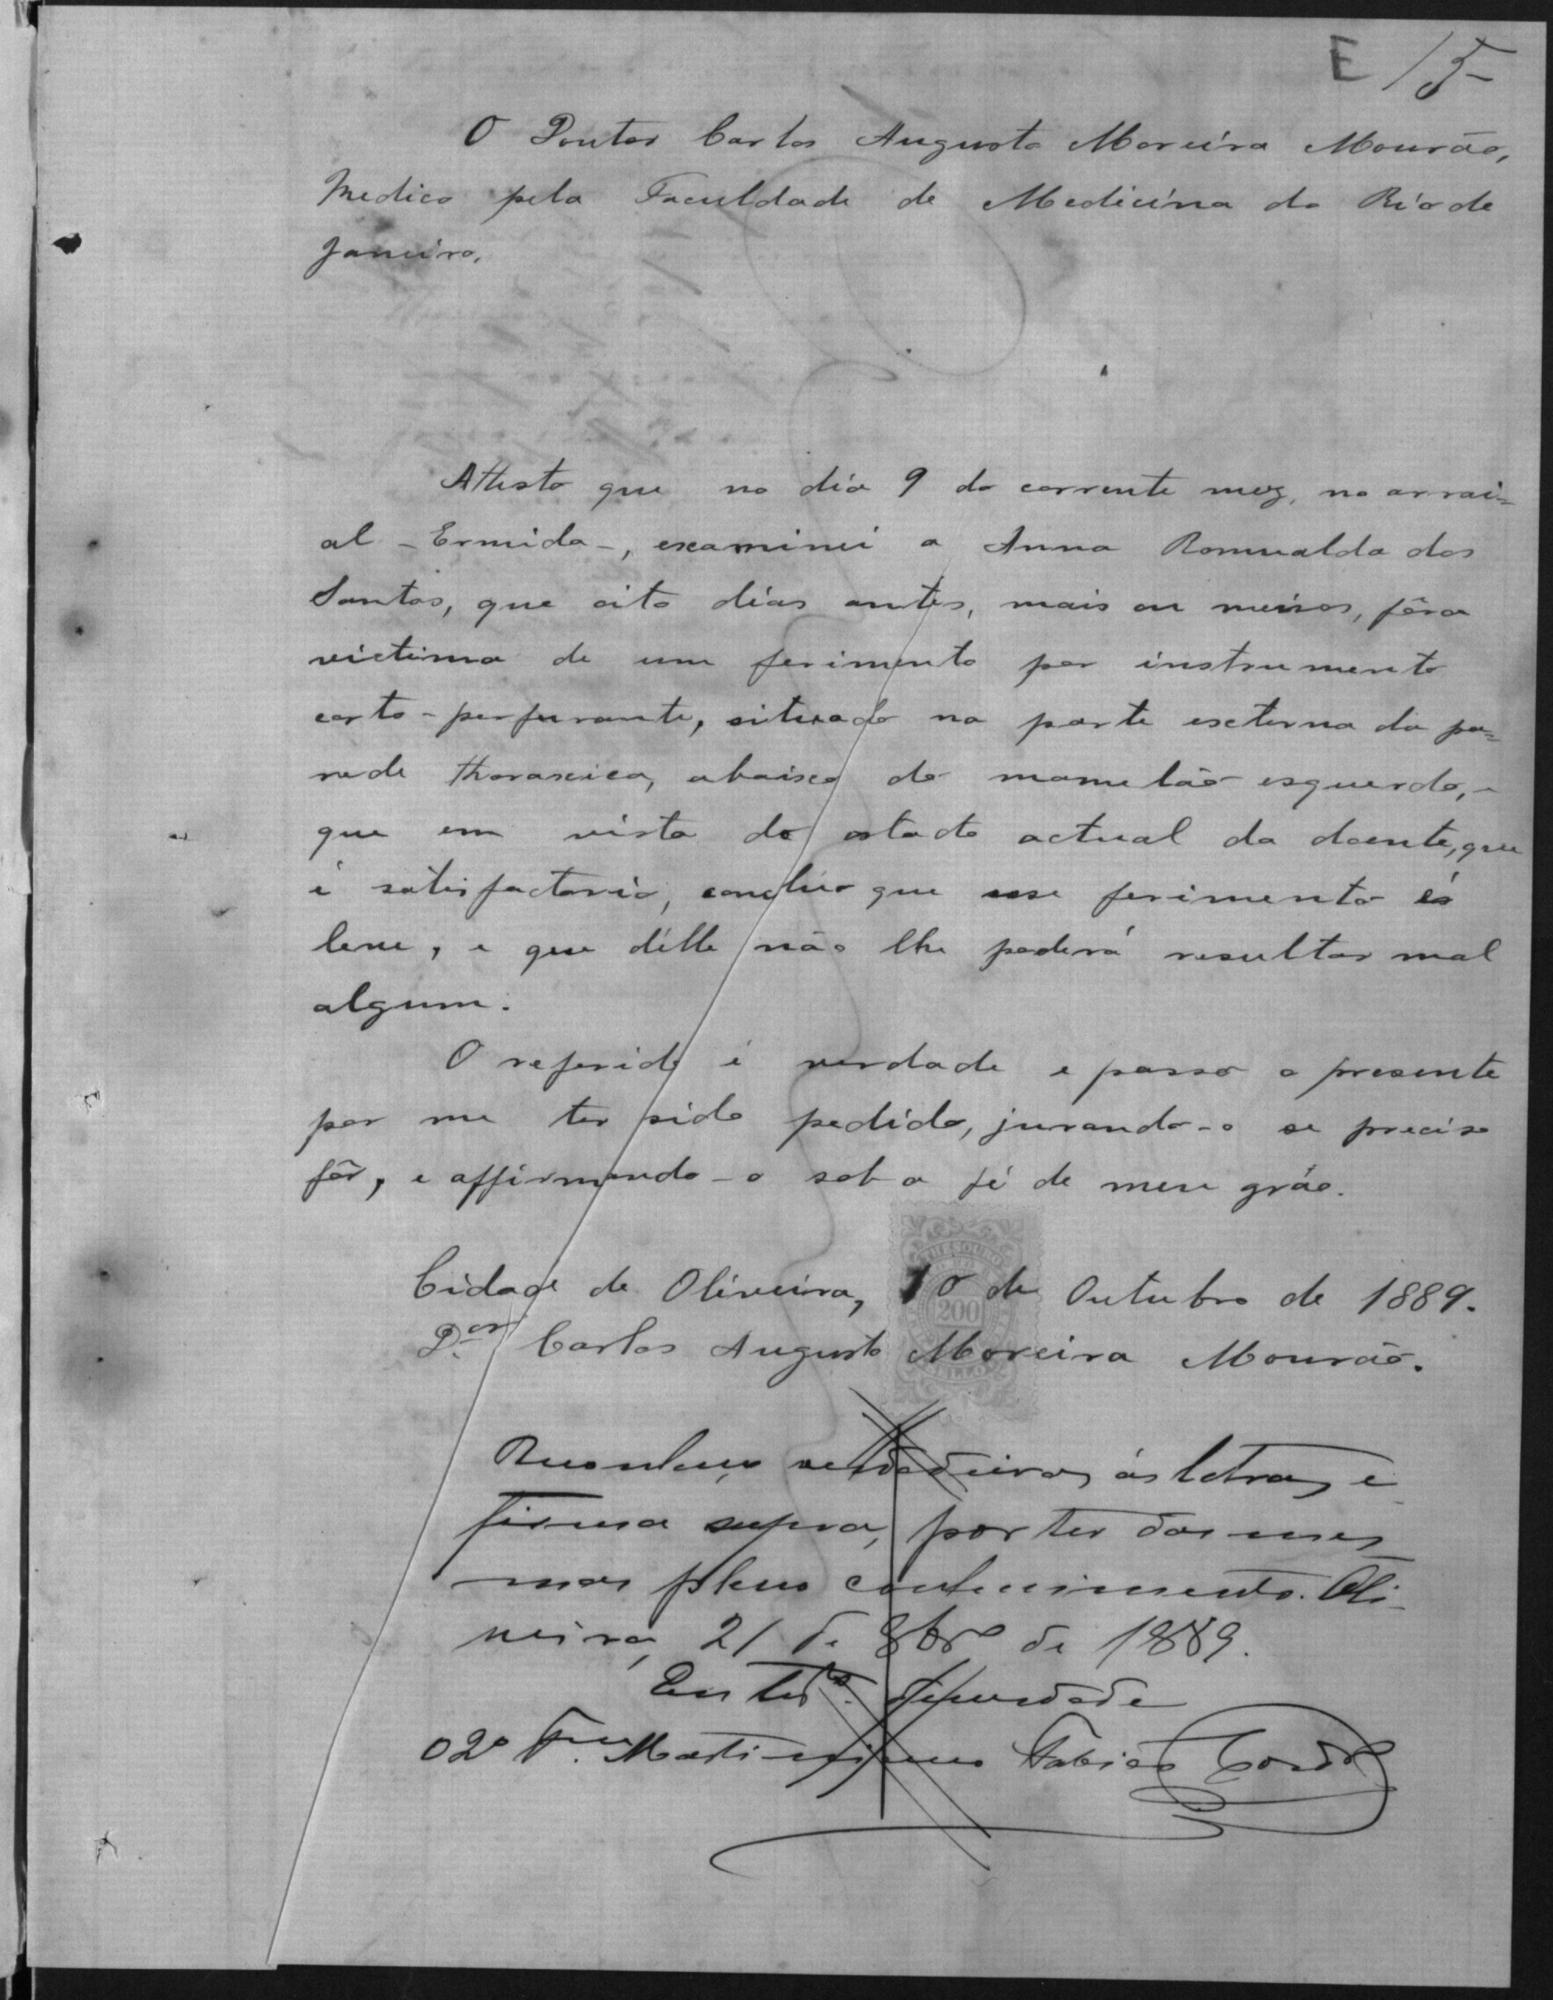 E 15
O Doutor Carlos Augusto Moreira Mourão,
Medico pela Faculdade de Medicina do Rio de
Janeiro.
Attesto que no dia 9 do corrente mez, no arrai=
al - Ermida -, examinei a Anna Romualda dos
Santos, que oito dias antes, mais ou menos, fôra
victima de um ferimento por instrumento
corto-perfurante, situado na parte externa da pa=
rede thoraxica, abaixo do mamelão esquerdo, e
que em vista do estado actual da doente, que
é satisfactorio, concluo que esse ferimento é
leve, e que délle não lhe poderá resultar mal
algum.
O referido é verdade e passo o presente
por me ter sido pedido, jurando-o se preciso
fôr, e affirmando-o sob a fé de meu gráo.
Cidade de Oliveira, 10 de Outubro de 1889.
D.or Carlos Augusto Moreira Mourão.
THESOURO
200
Reconheço verdadeiras ás letras e
firma supra, por ter das mes
mas pleno conhecimento. Oli-
veira, 21 de 8bro de 1889.
Em test.o da verdade
O 2o Martiniano Fabião